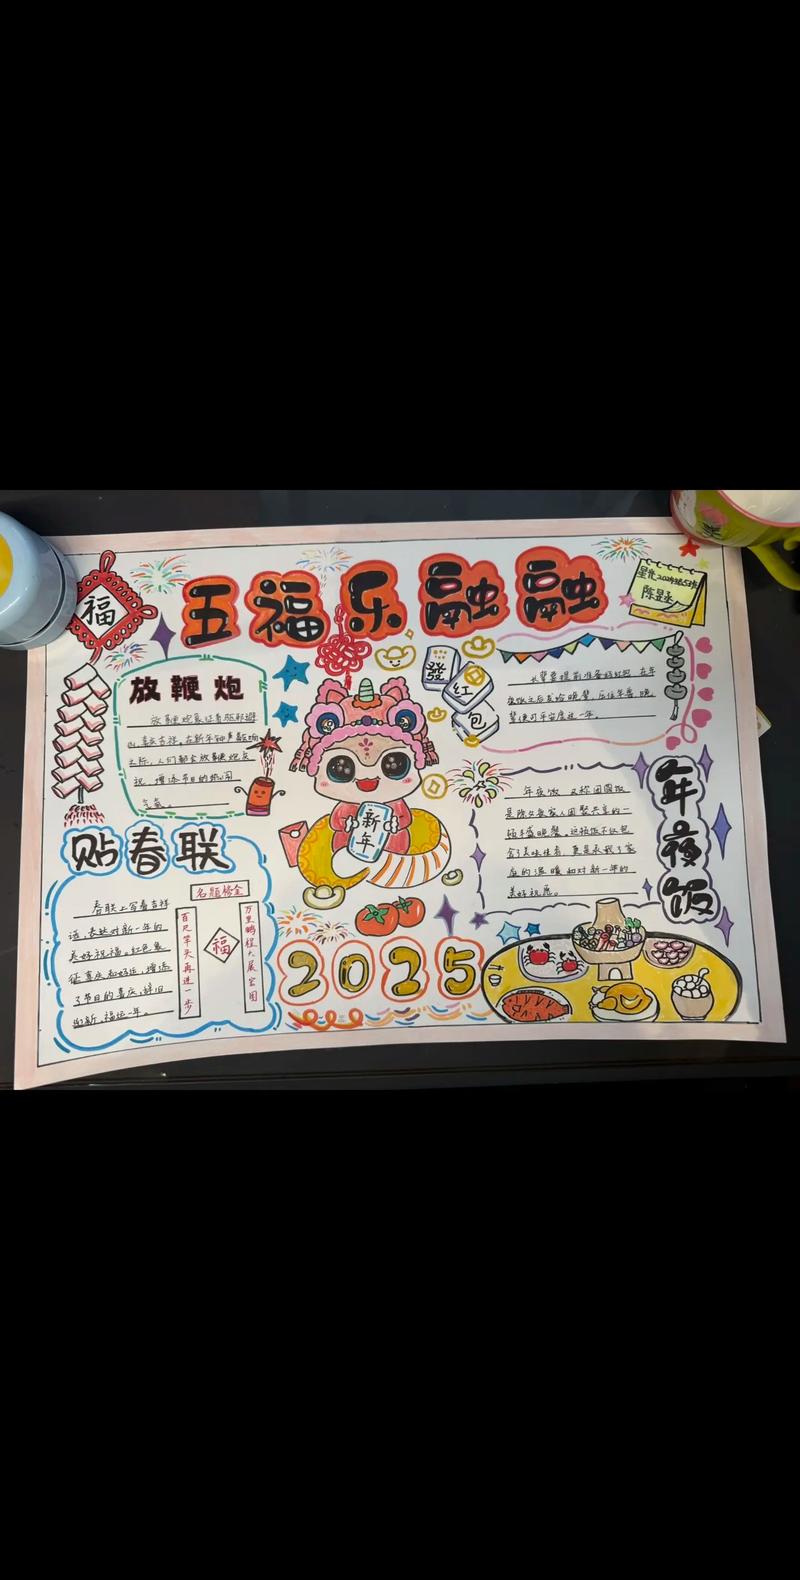 福
五福乐融融
陈昱丞
放鞭炮
放鞭炮象征着驱邪避
凶,喜庆吉祥。在新年钟声敲响
之际,人们都会放鞭炮庆
祝,增添节日的热闹
气氛。
發
红
包
长辈要提前准备好红包,在年
夜饭之后发给晚辈,压住年祟,晚
辈便可平安度过一年。
新
年
年夜饭
年夜饭 又称团圆饭
是除夕夜家人团聚共享的一
顿丰盛晚餐。这顿饭不仅包
含了美味佳肴,更是承载了家
庭的温暖和对新一年的
美好祝愿。
贴春联
春联上写着吉祥
话,表达对新一年的
美好祝福。红色象
征喜庆和好运,增添
了节日的喜庆,辞旧
迎新,福运一年。
金榜题名
百尺竿头再进一步
福
万里鹏程大展宏图
2025